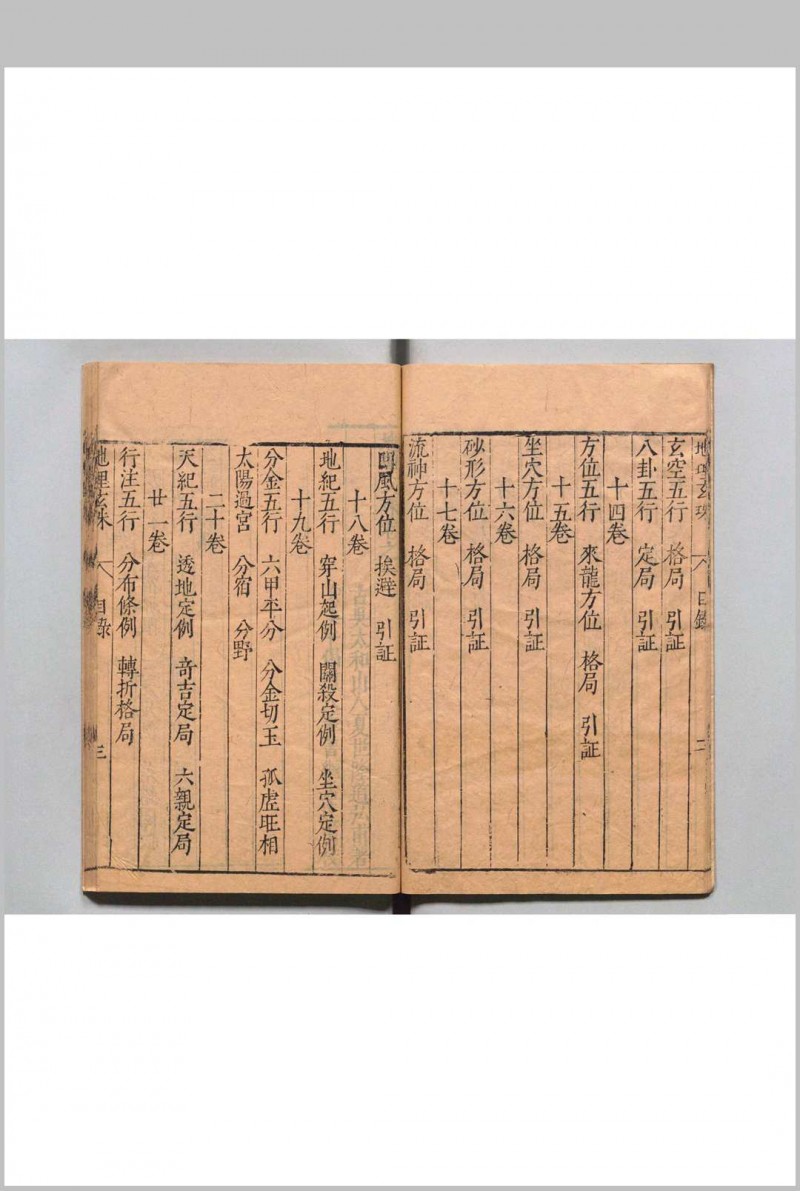 地理玄珠 目錄 二
玄空五行 格局 引証
八卦五行 定局 引証
十四卷
方位五行 來龍方位 格局 引証
十五卷
坐穴方位 格局 引証
十六卷
砂形方位 格局 引証
十七卷
流神方位 格局 引証
風方位 挨避 引証
十八卷
地紀五行 穿山起例 關殺定例 坐穴定例
十九卷
分金五行 六甲平分 分金切玉 孤虛旺相
太陽過宮 分宿 分野
二十卷
天紀五行 透地定例 竒吉定局 六親定局
廿一卷
行注五行 分布條例 轉折格局
地理玄珠 目錄 三